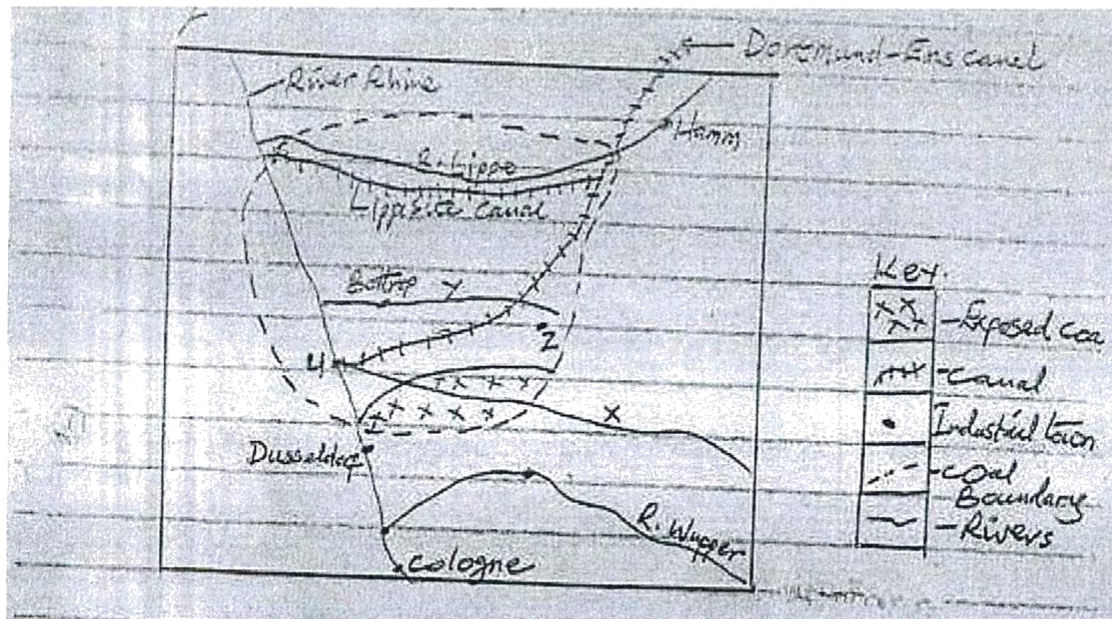 Dortmund-Ems canal
River Rhine
Hamm
R. Lippe
Lippsite canal
Bottrop Y
2
4
X
Dusseldorf
R. Wupper
Cologne
Key.
-Exposed coa
-canal
-Industrial town
-coal
Boundary
-Rivers